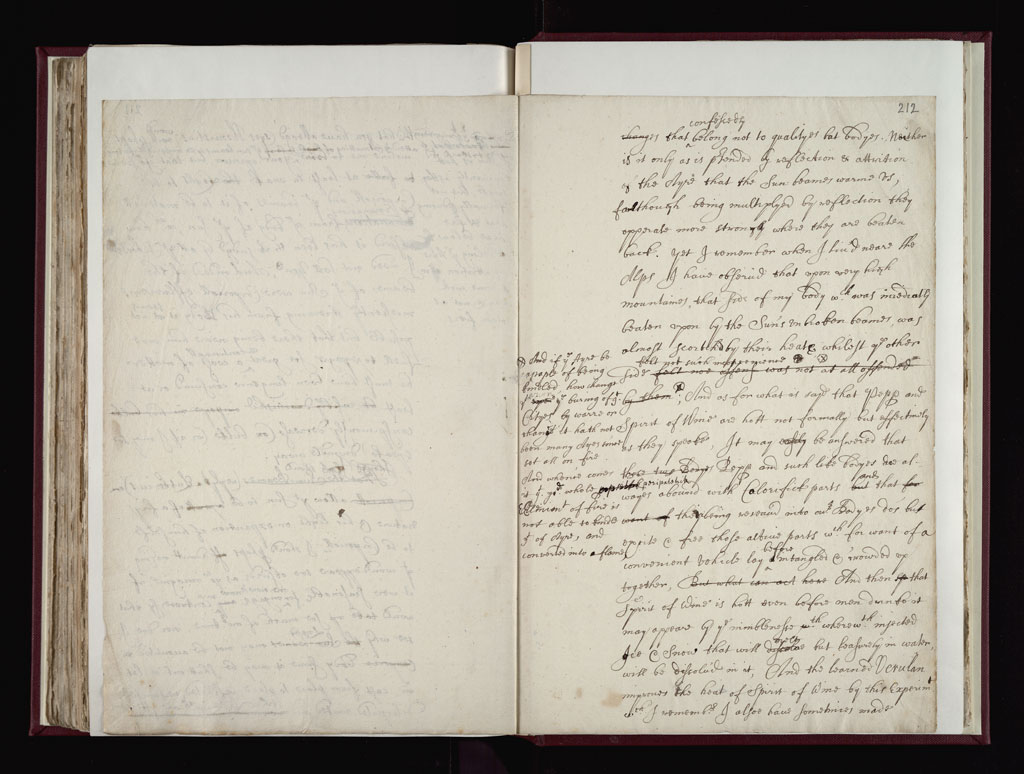 212
confessedly
changes that belong not to qualityes but bodyes. Neither
is it only as is ptended by reflection & attrition
of the Ayre that the Sun beames warme us,
for although being multiplyed by reflection they
opperate more strongly where they are beaten
back. Yet I remember when I liu'd neare the
Alps I have obseru'd that upon very high
mountaines, that side of my body wch was imediatly
beaten upon by the Sun's unbroken beames, was
almost scorched by their heate whilest ye other
felt not such inconvenience
side felt noe was not at all offended
by them. And as for what is sayd that Pepp and
Spirit of Wine are hott not formally but effectively
as they speake, It may easily be answered that
these two Bodyes Pepp and such like bodyes doe al-
and
wayes abound with Calorifick parts but that for
want of the being received into our Bodyes does but
excite & free those active parts wch for want of a
before
convenient vehicle lay intangled & crowded up
together, But what can act here And then that
Spirit of Wine is hott even before men drinke it
may appeare by ye nimblenesse wth wherewth injected
Ice & Snow that will dissolve but leasurely in water
will be dissolu'd in it, And the learned Verulam
improves the heat of Spirit of Wine by this Experimt
wch I remember I alsoe have sometimes made
& And if ye Ayre be
capable of being
kindled how chance
upon ye burning of gt
Cittyes by warre or
chance it hath not
been many Ayes since
set all on fire
And whence comes
it yt ye whole
Element of fire is
not able to kindle
yt of Ayre, and
convert it into a flame